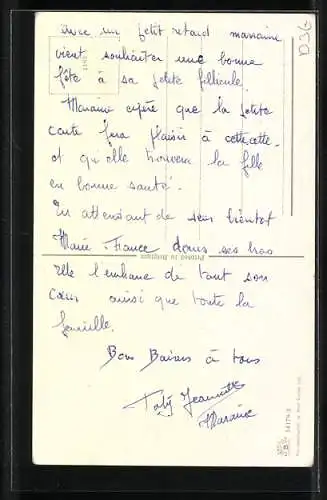 avec un petit retard marraine
vient souhaiter une bonne
fête à sa petite fillieule.
Maraine espère que la petite
carte fera plaisir à cette
et qu'elle trouvera la fille
en bonne santé.
En attendant de bientot
Marie-France dans ses bras
Elle l'embrasse de tout son
cœur ainsi que toute la
famille.
Bons Baisers à tous
Jeannette
Maraine
Printed in Belgium
D36